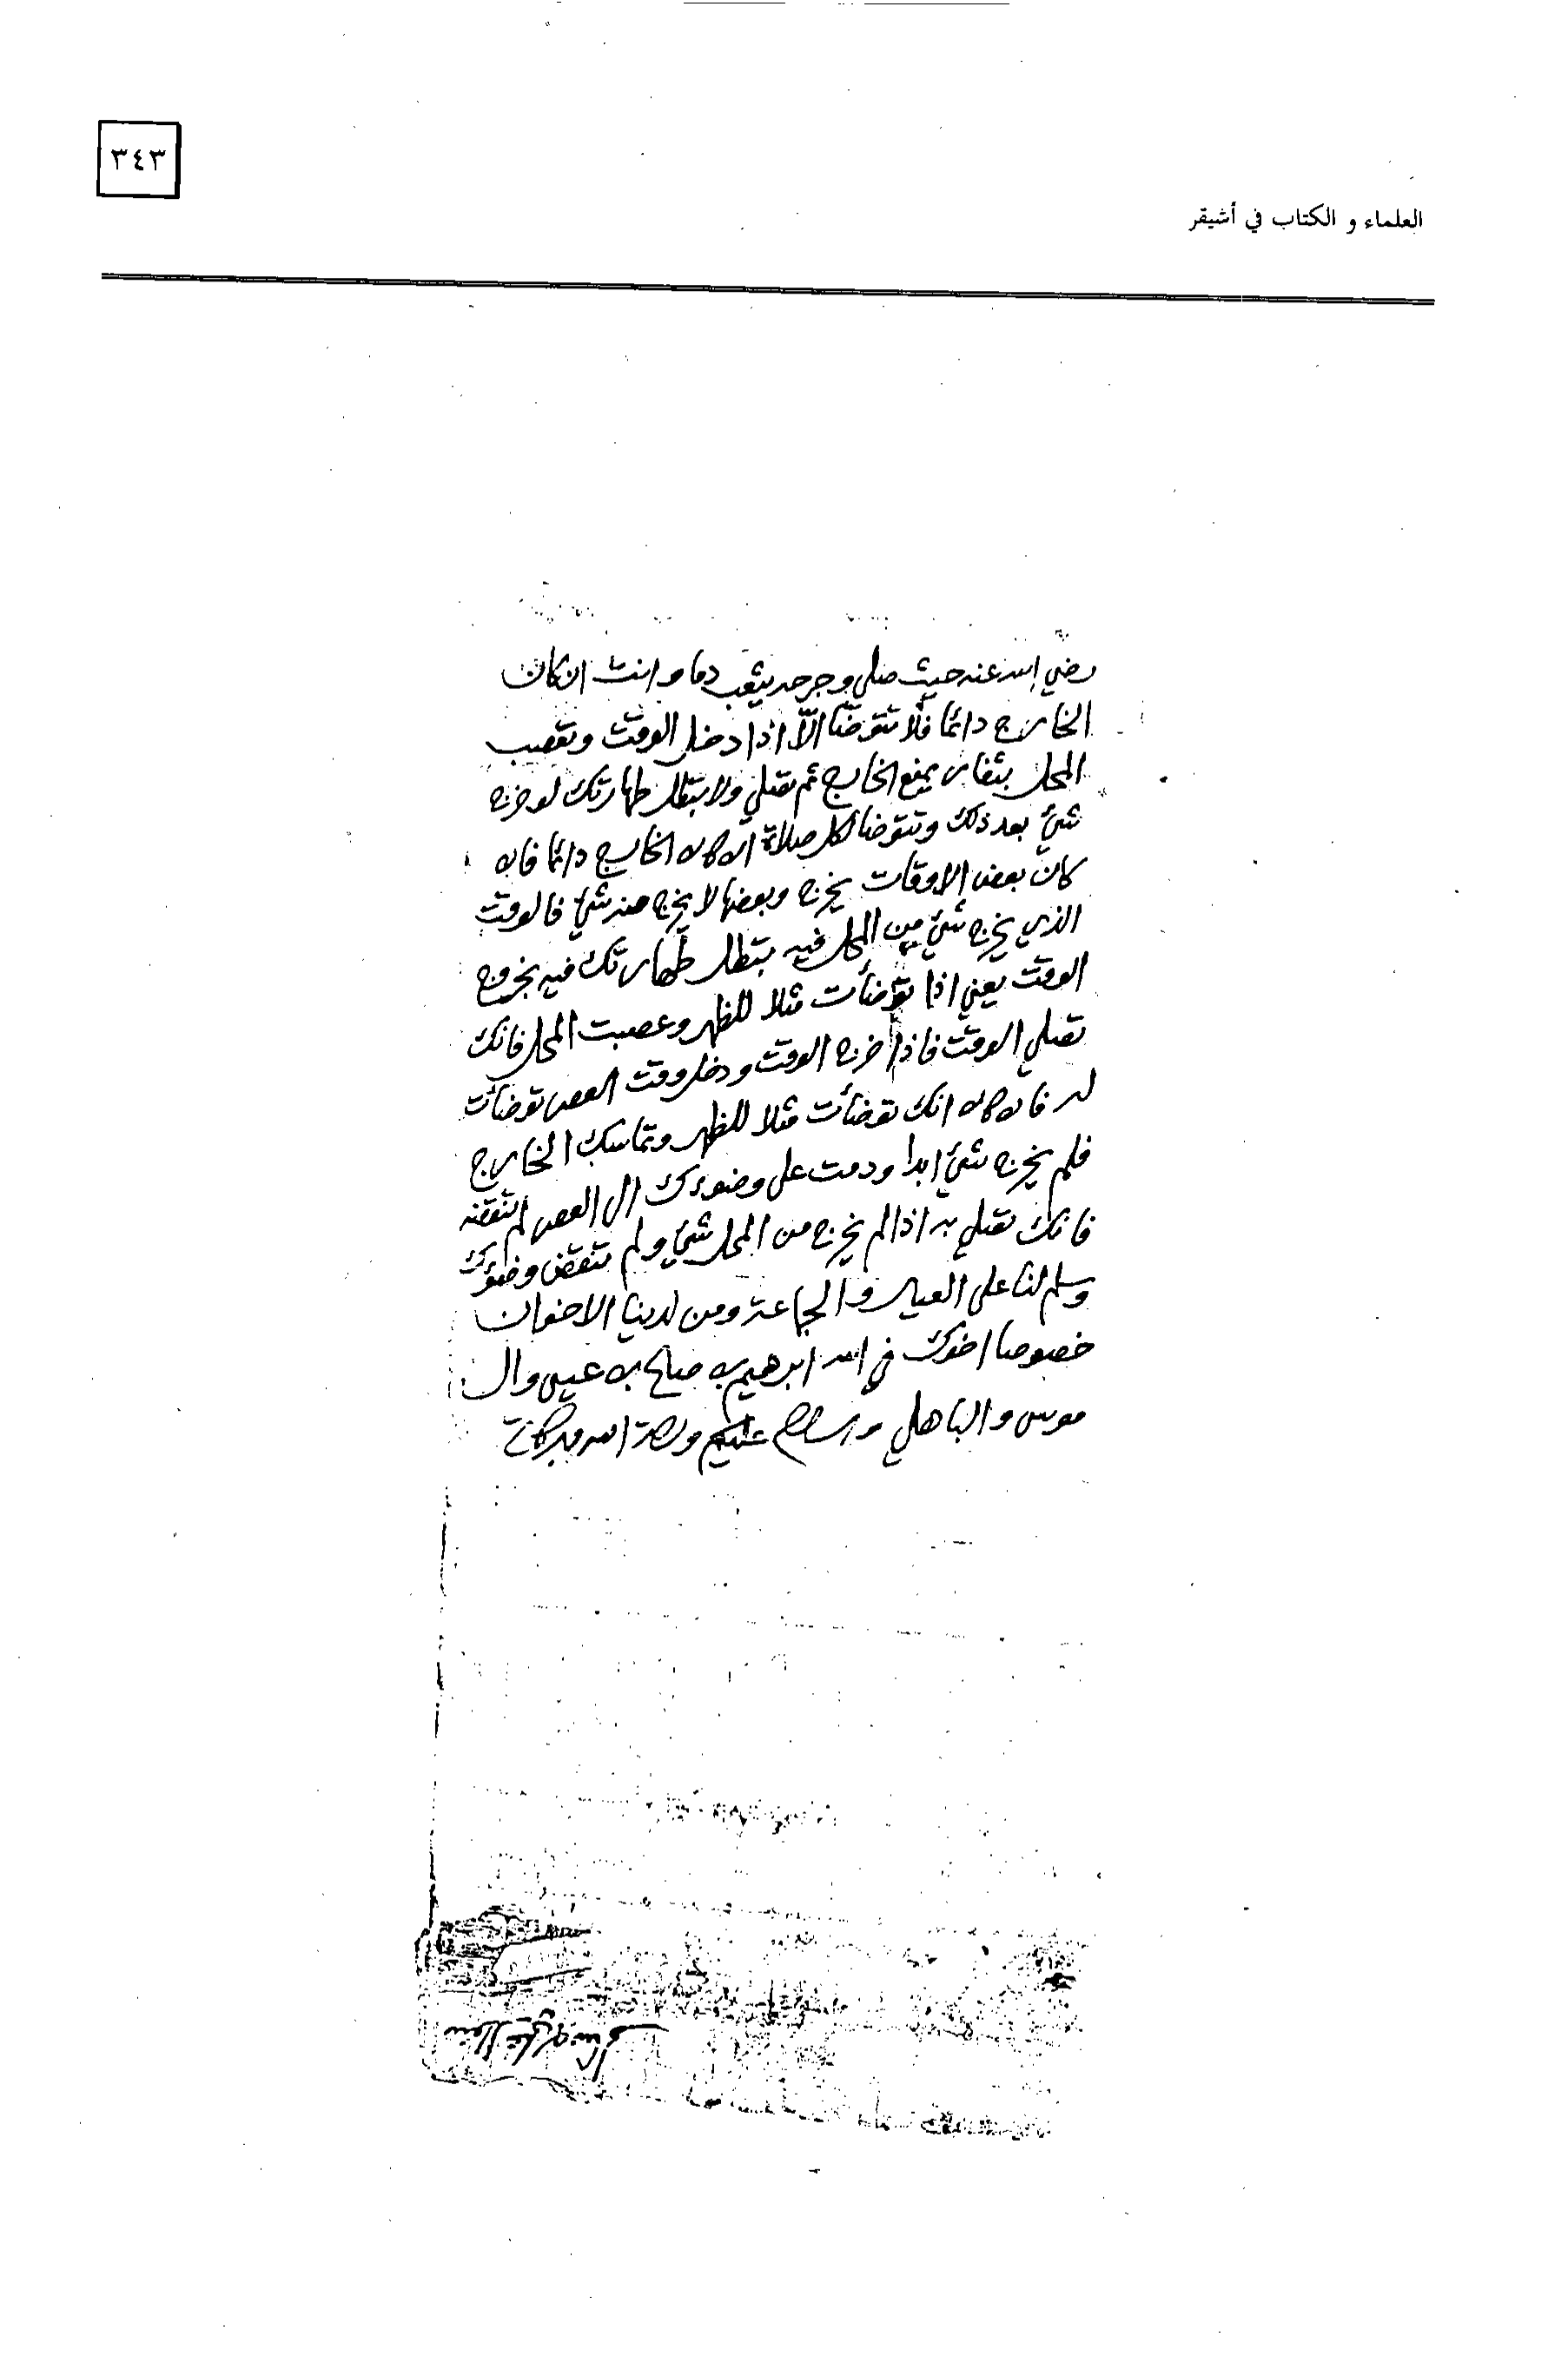 ٣٤٣
العلماء و الكتاب في أشيقر
رضي الله عنه حيث صلي وجرحه يثعب دما وانت ان كان
الخارج دائما فلا تتوضا الا اذا دخل الوقت وتعصب
المحل بثفار يمنع الخارج ثم تصلي ولا تبطل طهارتك لو خرج
شيء بعد ذلك وتتوضا لكل صلاة ان كان الخارج دائما فان
كان بعض الاوقات يخرج وبعضها لا يخرج منه شيء فالوقت
الذي يخرج شيء من المحل فيه تبطل طهارتك فيه بخروج
الوقت يعني اذا توضأت مثلا للظهر وعصبت المحل فانك
تصلي الوقت فاذا خرج الوقت ودخل وقت العصر توضأت
له فان كان انك توضأت مثلا للظهر وتماسك الخارج
فلم يخرج شيء ابدا ودمت على وضوءك الى العصر لم تنقضه
فانك تصلي به اذا لم يخرج من المحل شيء ولم تنقض وضوءك
وسلم لنا على العيال والجماعة ومن لدينا الاخوان
خصوصا اخوك في الله ابرهيم بن صالح بن عيسى وال
موسى والباهلي والسلام عليكم ورحمة الله وبركاته